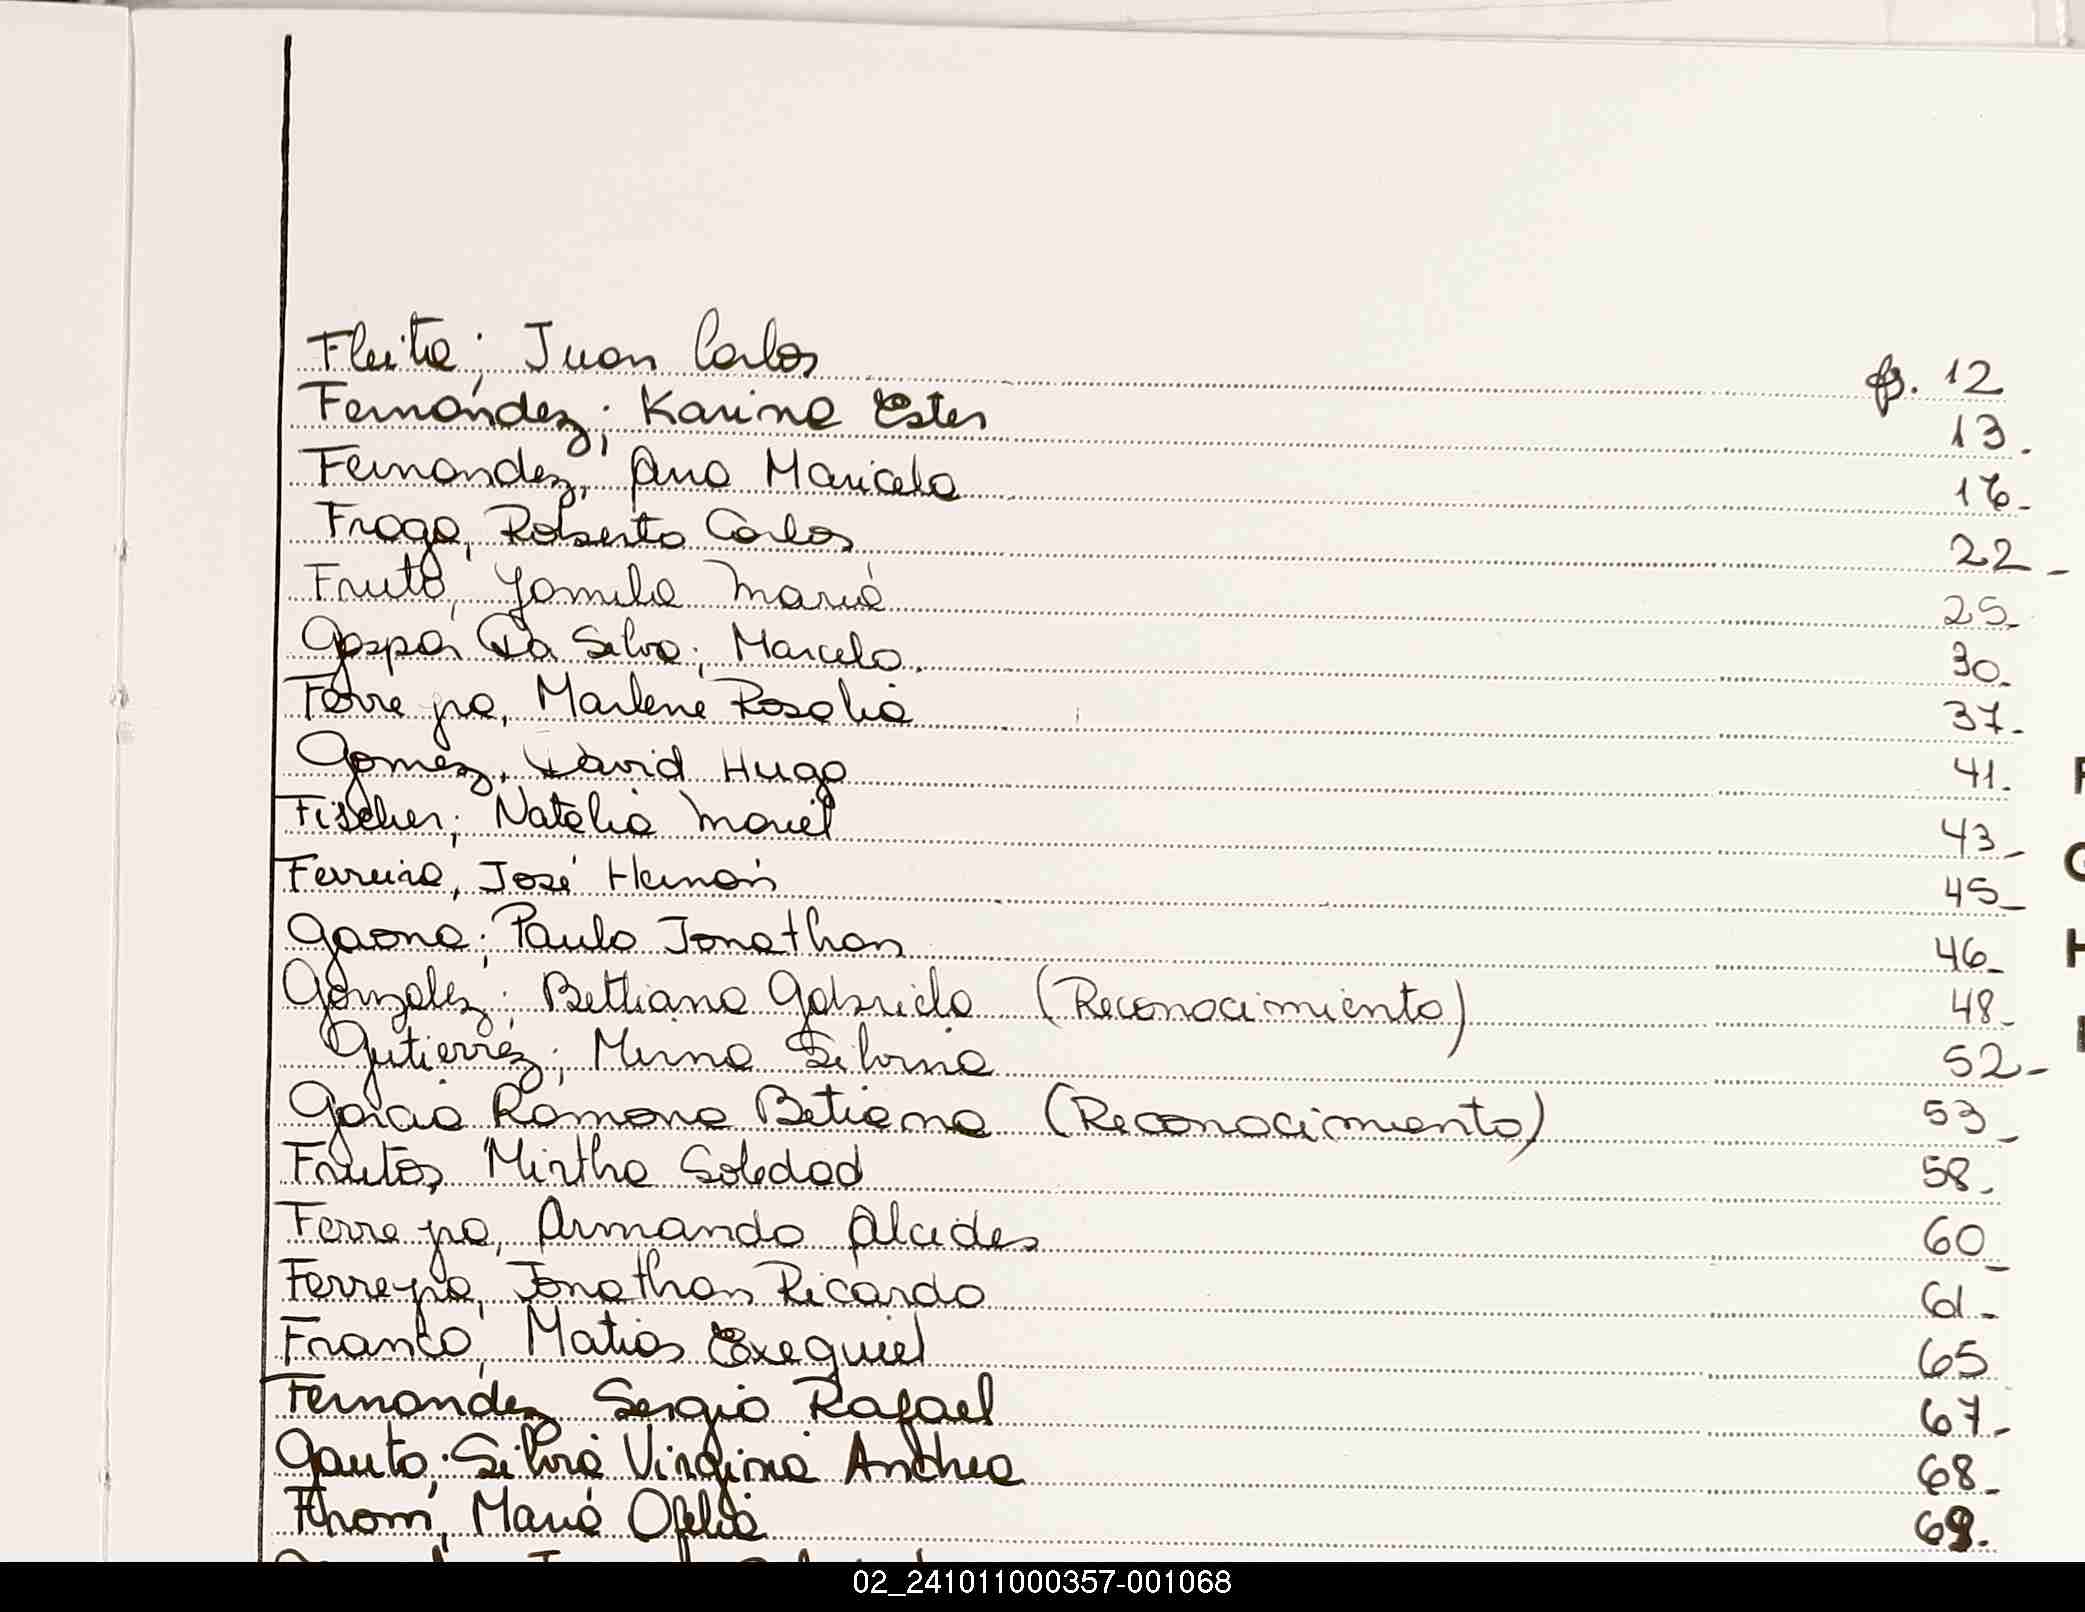 Fleita; Juan Carlos fs. 12
Fernández; Karina Ester 13.
Fernandez, Ana Maricela 16-
Fraga, Roberto Carlos 22-
Fruto, Yamila María 25-
Gaspar Da Silva; Marcelo. 30-
Ferreyra, Marlene Rosalia 37-
Gomez, David Hugo 41.
Fischer; Natalia Mariel 43-
Ferreira, José Hernán 45-
Gaona; Paulo Jonathan 46-
Gonzalez; Bettiana Gabriela (Reconocimiento) 48-
Gutierrez; Mirna Silvina 52-
Garcia Ramona Betiana (Reconocimiento) 53-
Frutos, Mirtha Soledad 58-
Ferreyra, Armando Alcides 60-
Ferreyra, Jonathan Ricardo 61-
Franco, Matias Exequiel 65
Fernandez Sergio Rafael 67-
Gauto; Silvia Virginia Andrea 68-
María Ofelia 69.
F
G
H
I
02_241011000357-001068